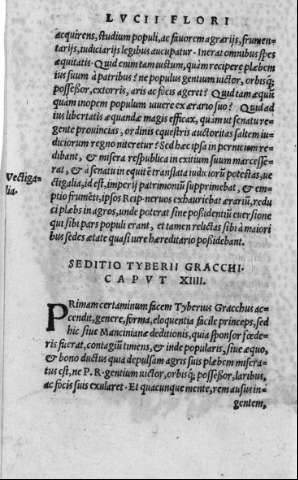 LVCII FLORI
acquirens, studium populi, ac fauorem agrarijs, frumen-
tarijs, iudiciarijs legibus aucupatur. Inerat omnibus spes
æquitatis. Quid enim tam iustum, quàm recipere plebem
ius suum à patribus? ne populus gentium uictor, orbisq;
possessor, extorris, aris ac focis ageret? Quid tam æquũ
quàm inopem populum uiuere ex ærario suo? Quid ad
ius libertatis æquandæ magis efficax, quàm ut senatu re-
gente prouincias, ordinis equestris auctoritas saltem iu-
diciorum regno niteretur? Sed hæc ipsa in perniciem re-
dibant, & misera respublica in exitium suum marcesse-
rat, & à senatu in equites translata iudiciorũ potestas, ue
Vectiga
ctigalia, id est, imperij patrimoniũ supprimebat, & em-
lia.
ptio frumẽti, ipsos Reip. neruos exhauriebat ærariũ, redu
ci plebs in agros, unde poterat sine possidentiũ euersione
qui sibi pars populi erant, et tamen relictas sibi à maiori
bus sedes ætate quasi iure hæreditario possidebant.
SEDITIO TYBERII GRACCHI.
CAPVT XIIII.
PRimam certaminum facem Tyberius Gracchus ac-
cendit, genere, forma, eloquentia facile princeps, sed
hic siue Mancinianæ deditionis, quia sponsor fœde-
ris fuerat, contagiũ timens, & inde popularis, siue æquo,
& bono ductus quia depulsam agris suis plebem misera-
tus est, ne P. R. gentium uictor, orbisq; possessor, laribus,
ac focis suis exularet. Et quacunque mente, rem ausus in-
gentem,